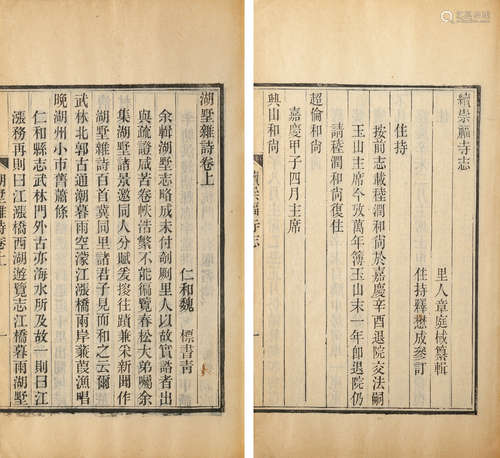 續崇福寺志
里人章庭棫纂輯
住持釋懋成參訂
住持
按前志載稑澗和尚於嘉慶辛酉退院交法嗣
玉山主席今攷萬年簿玉山末一年卽退院仍
請稑澗和尚復住
超倫和尚
嘉慶甲子四月主席
興山和尚
續崇福寺志
湖墅雜詩卷上
仁和魏 標書青
余輯湖墅志略成未付剞劂里人以故實詒者出
與疏證咸苦卷帙浩繁不能徧覽春松大弟囑余
集湖墅諸景邀同人分賦爰摭往蹟兼采新聞作
湖墅雜詩百首冀同里諸君子見而和之云爾
武林北郭古通潮暮雨空濛江漲橋兩岸蒹葭漁唱
晚湖州小市舊蕭條
仁和縣志武林門外古亦海水所及故一則曰江
漲務再則曰江漲橋西湖遊覽志江橋暮雨湖墅
湖墅雜詩卷上